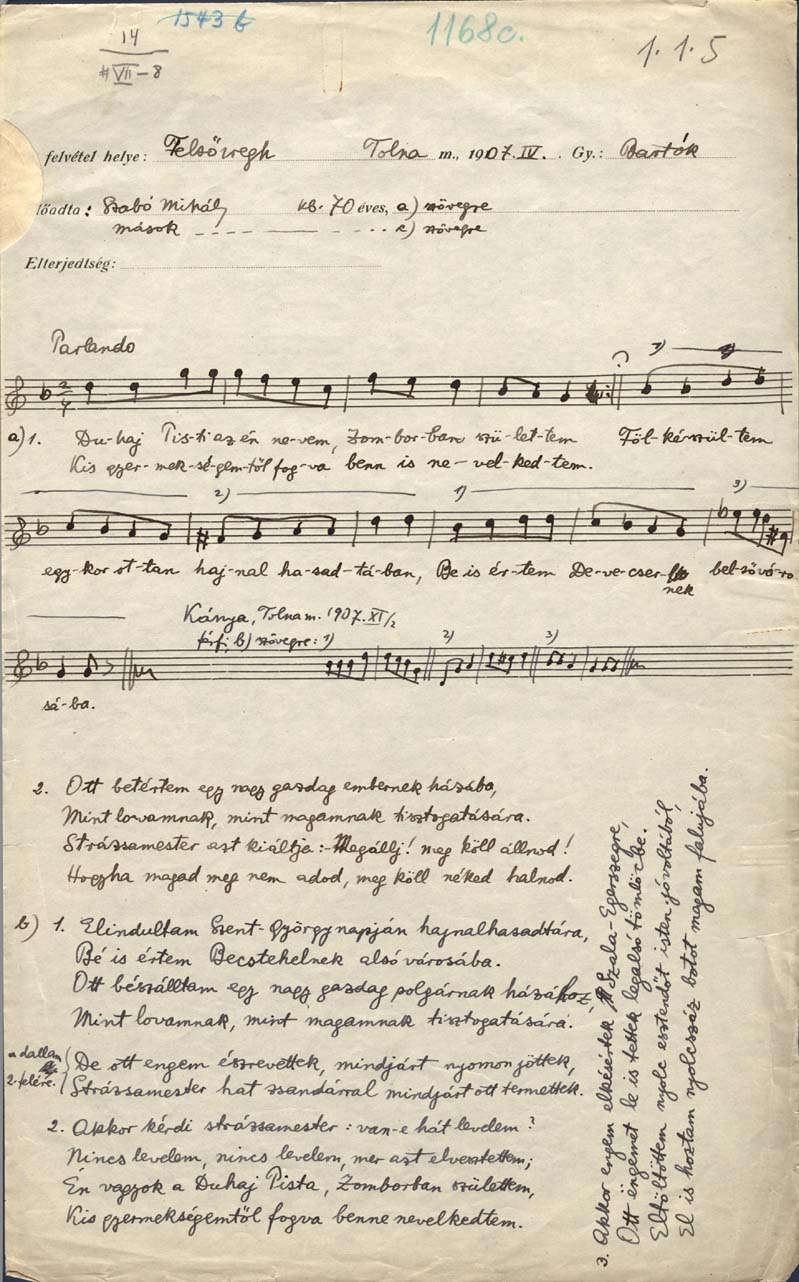 14
VII-8
1543 b
1168c.
1. 1. 5
felvétel helye: Felsőiregh Tolna m., 1907.IV. Gy.: Bartók
lőadta: Szabó Mihály kb. 70 éves, a) szövegre
mások c) szövegre
Elterjedtség:
Parlando
2/4
1) 2)
a) 1. Du-haj Pis-ti az én ne-vem, Zom-bor-ban szü-let-tem Föl-kér-szül-tem
Kis gyer-mek-sé-gem-től fog-va benn is ne-vel-ked-tem.
2) 1) 3)
egy-kor ot-tan haj-nal ha-sad-tá-ban, Be is ér-tem De-ve-cser- bel-ső vá-ro
nek
Kánya, Tolna m. 1907. XI/2
férfi; b) szövegre: 1) 2) 3)
sá-ba.
2. Ott betértem egy nagy gazdag embernek házába,
Mint lovamnak, mint magamnak tisztogatására.
Strázsamester azt kiáltja: - Megállj! meg köll állnod!
Hogyha magad meg nem adod, meg köll néked halnod.
b) 1. Elindultam Szent-György napján hajnalhasadtára,
Bé is értem Becstehelnek alsó városába.
Ott bészálltam egy nagy gazdag polgárnak házához,
Mint lovamnak, mint magamnak tisztogatására.
a dallam
2. felére.
De ott engem észrevettek, mindjárt nyomon jöttek,
Strázsamester hat zsandárral mindjárt ott termettek.
2. Akkor kérdi strázsamester: van-e hát levelem?
Nincs levelem, nincs levelem, mer azt elvesztettem;
Én vagyok a Duhaj Pista, Zomborban születtem,
Kis gyermekségemtől fogva benne nevelkedtem.
3. Akkor engem elkésértek Szala-Egerszegre,
Ott engemet le is tettek legalsó tömlöcbe.
Eltöltöttem nyolc esztendőt isten jóvoltából,
El is hoztam nyolcszáz botot magam falujába.